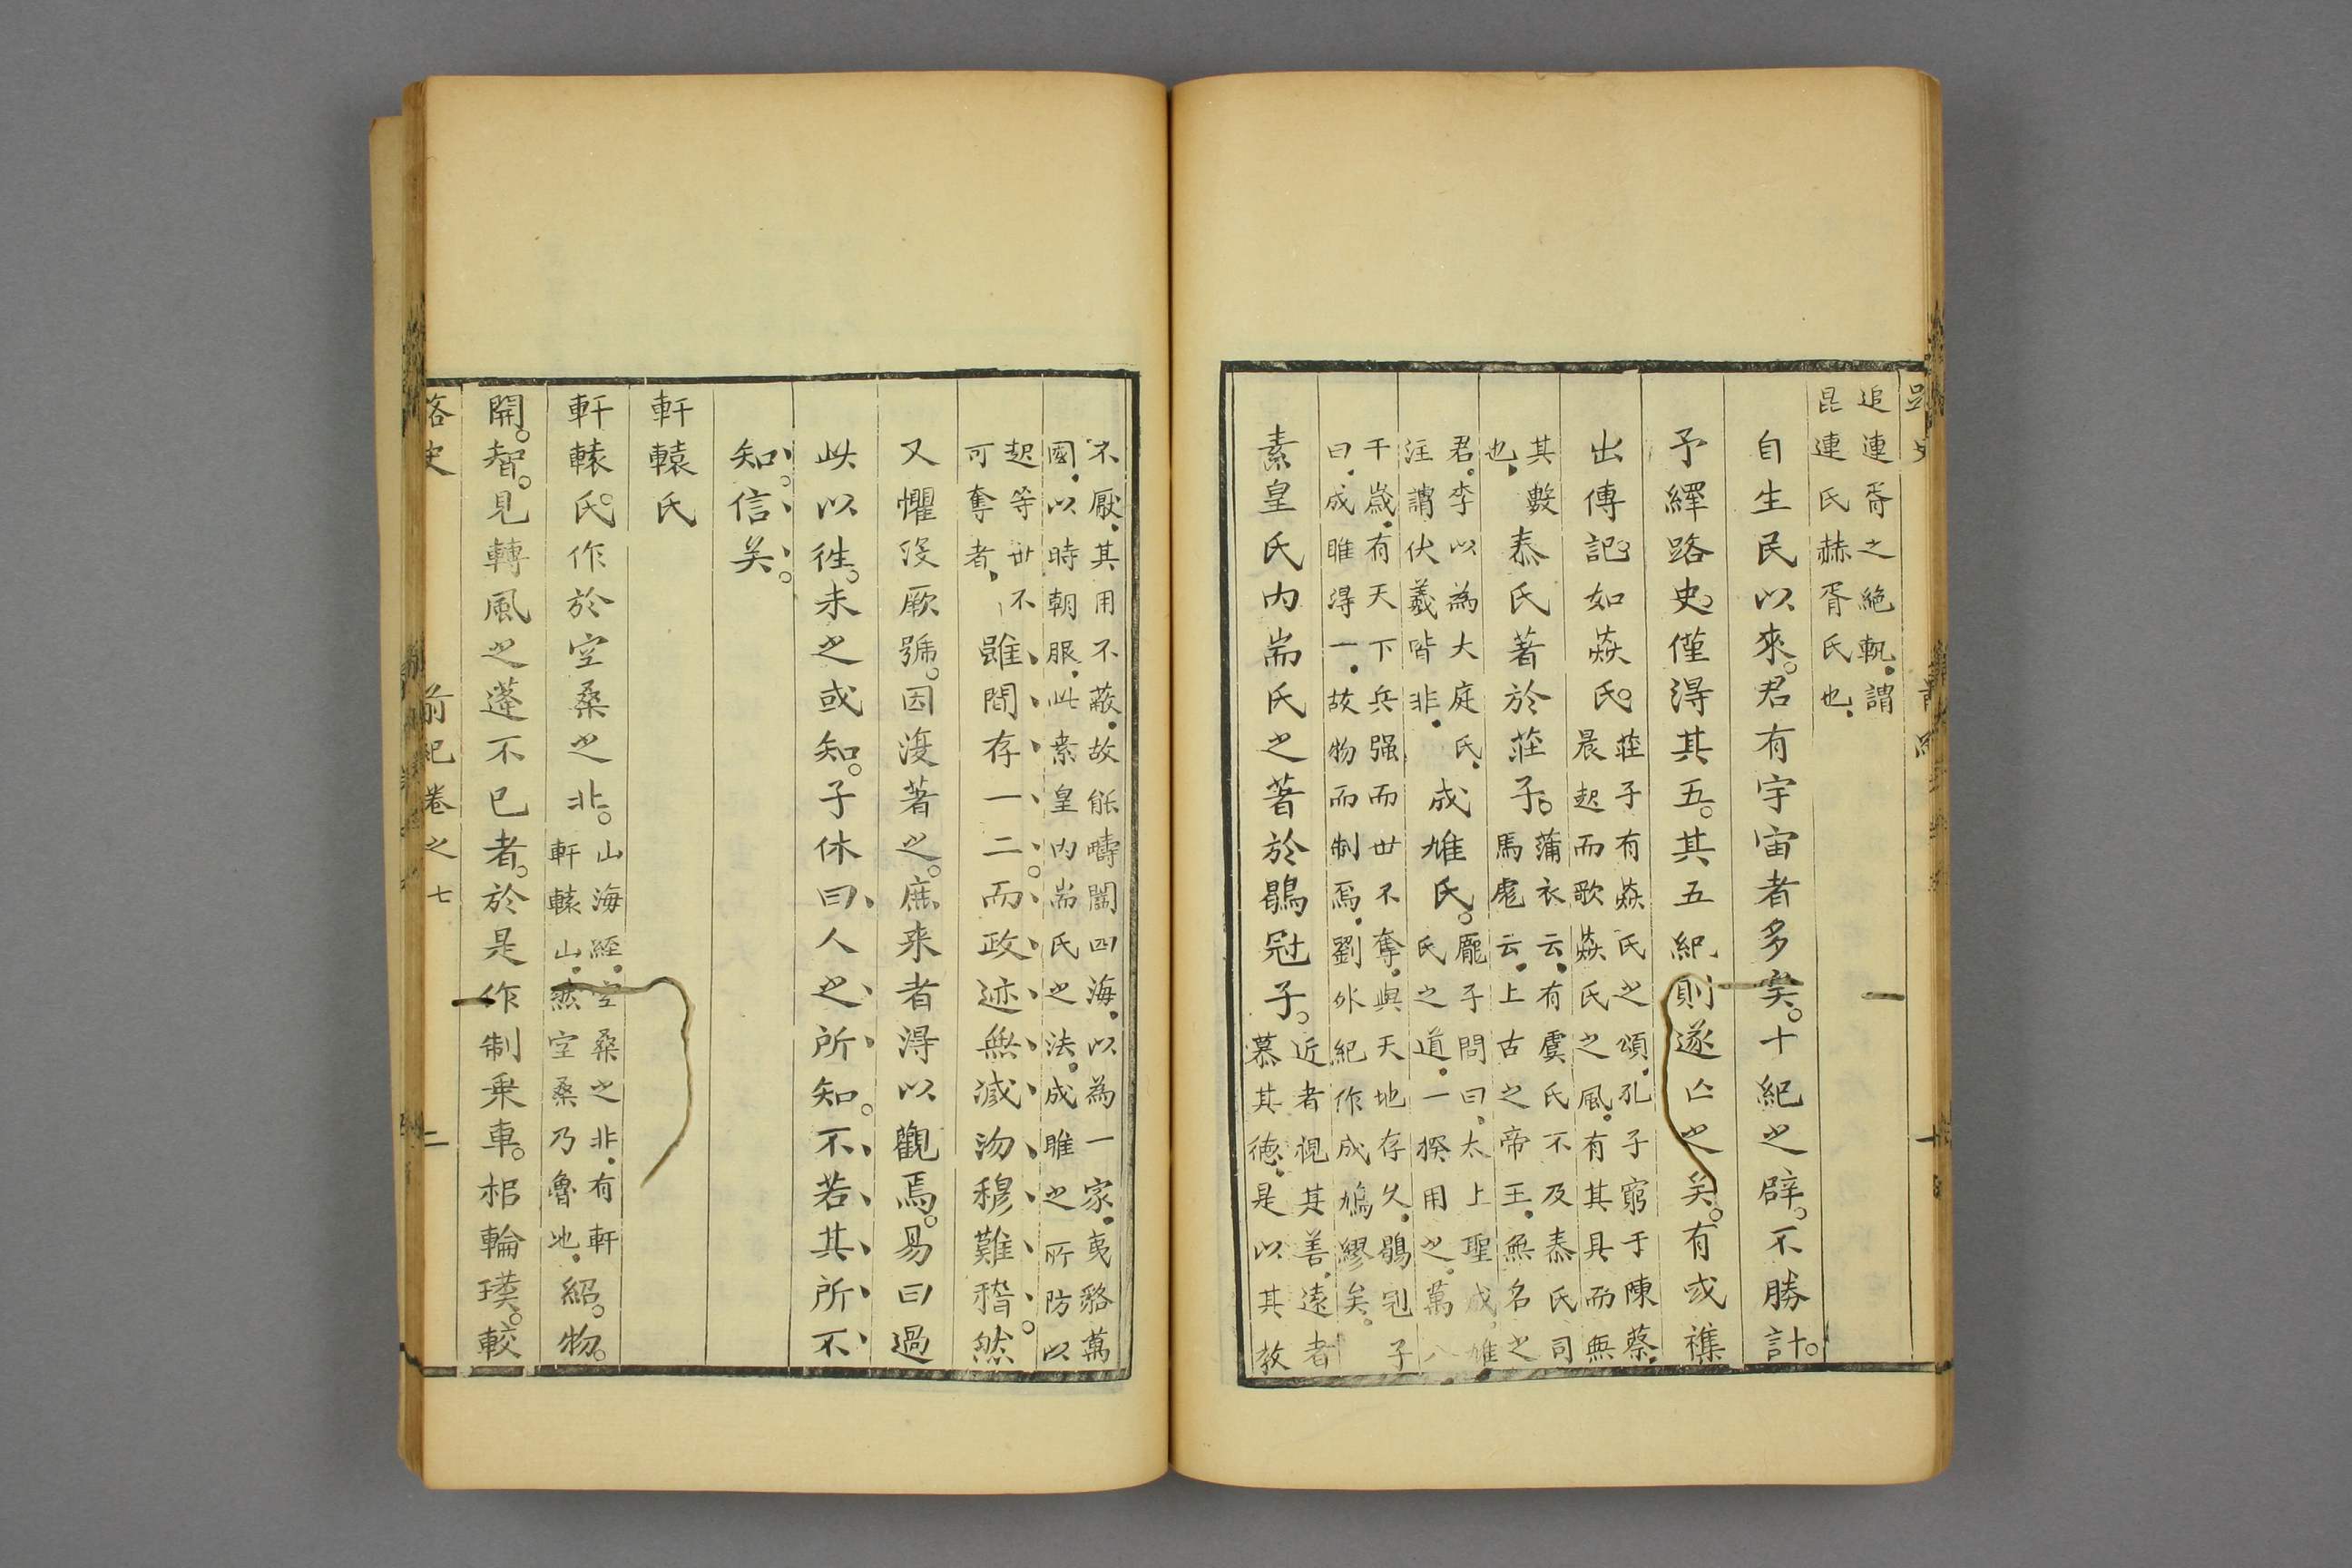 追連胥之絶軌謂
昆連氏赫胥氏也
自生民以來君有宇宙者多矣十紀之辟不勝計
予繹路史僅得其五其五紀則遂亡之矣有或襍
出傳記如焱氏
莊子有焱氏之頌孔子窮于陳蔡
晨起而歌焱氏之風有其具而無
其數
也
泰氏著於莊子
蒲衣云有虞氏不及泰氏司
馬彪云上古之帝王無名之
君李以為大庭氏
注謂伏羲皆非
成雄氏
龎子問曰太上聖成雄
氏之道一揆用之萬八
千嵗有天下兵强而世不奪與天地存久鶡冠子
曰成雎得一故物而制焉劉外紀作成鳩繆矣
素皇氏内耑氏之著於鶡冠子
近者視其善遠者
慕其德是以其敎
不厭其用不蔽故能疇闔四海以為一家夷貉萬
國以時朝服此素皇内耑氏之法成雎之所防以
起等世不
可奪者
雖間存一二而政迹無滅沕穆難稽然
又懼没厥號因復著之庶来者得以觀焉易曰過
此以徃未之或知子休曰人之所知不若其所不
知信矣
軒轅氏
軒轅氏作於空桑之北
山海經空桑之北有軒
軒轅山然空桑乃魯地
紹物
開智見轉風之蓬不已者於是作制乗車梠輪璞較
路史
前紀卷之七
二